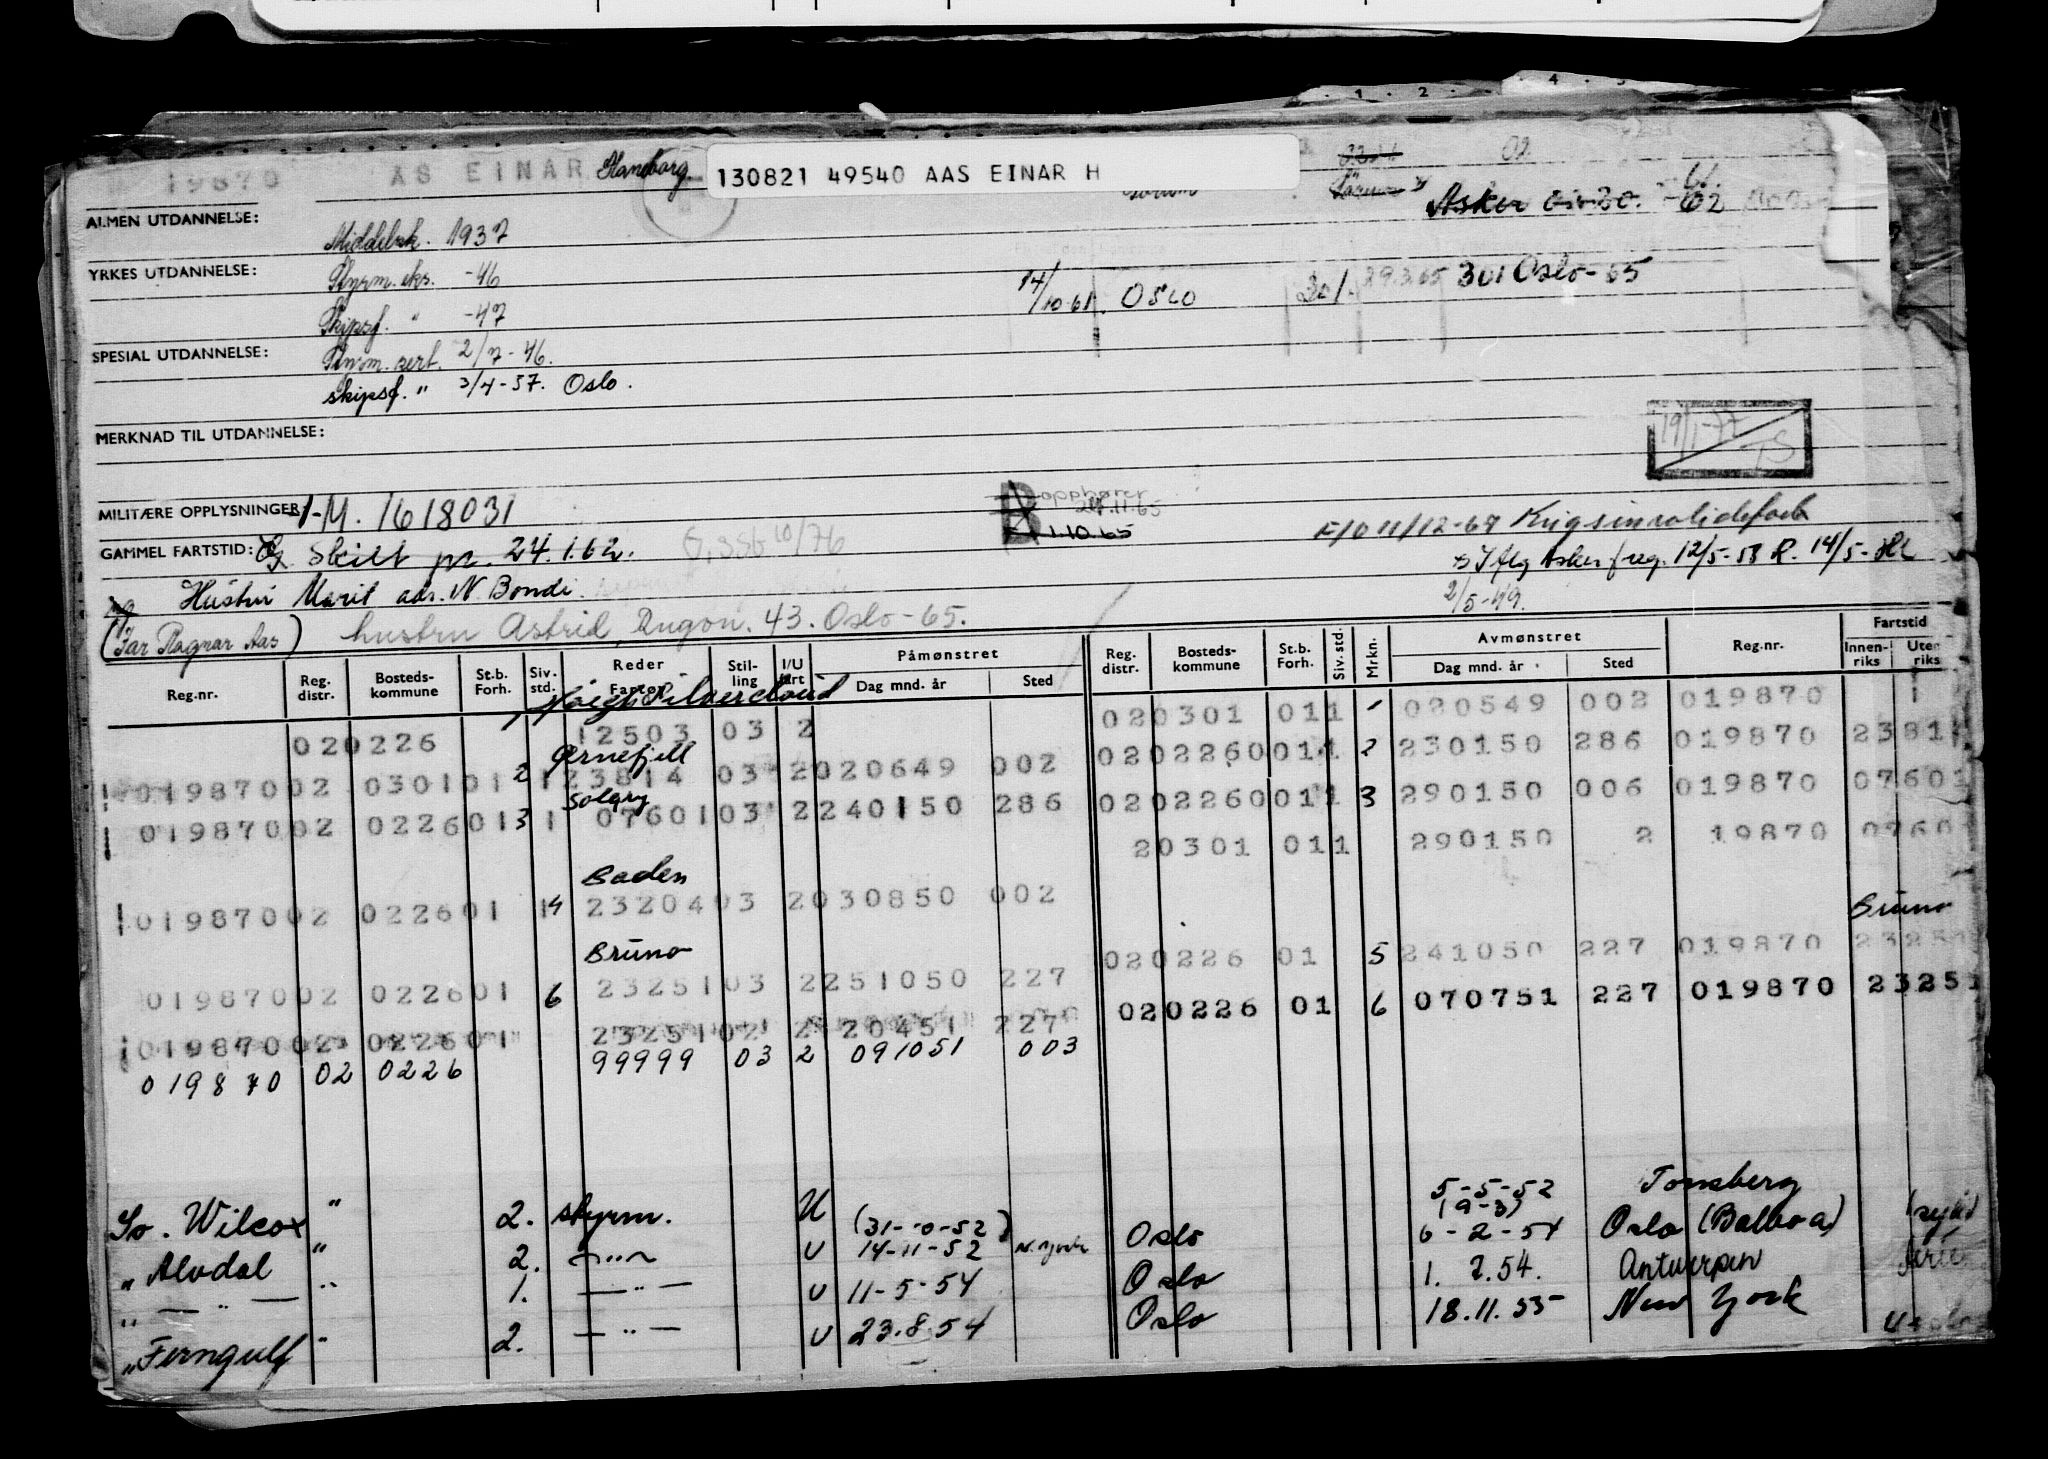 19870 AS EINAR Hansborg. 130821 49540 AAS EINAR H 02
Asker 62
ALMEN UTDANNELSE: Middelsk. 1937
YRKES UTDANNELSE: Styrm. eks. -46 14/10-61. OSLO 301. 29.3.65 301 Oslo-65
Skipsf. " -47
SPESIAL UTDANNELSE: Styrm. sert. 2/7-46.
skipsf. " 3/4-57. Oslo.
MERKNAD TIL UTDANNELSE: 19/1-77
MILITÆRE OPPLYSNINGER: M. 1618031 B opphører 24.11.65
1.10.65
GAMMEL FARTSTID: Skilt pr. 24.1.62. 10/76
Asker freg. 12/5-58 R. 14/5-
Hustru Marit adr. N Bondi. 2/5-49.
(Far Ragnar Aas) hustru Astrid, Rugon. 43. Oslo-65.
Reg.nr. Reg. distr. Bosteds-kommune St.b. Forh. Siv. std. Reder Fartøy Stil-ling I/U fart Påmønstret Dag mnd. år Sted Reg. distr. Bosteds-kommune St.b. Forh. Siv. std. Mrkn. Avmønstret Dag mnd. år Sted Reg.nr. Fartstid Innen-riks Uten-riks
020226 12503 03 2 020301 011 1 020549 002 019870
Ørnefjell
019870 02 030101 1 2 1 23814 03 2 020649 002 020226 0011 2 230150 286 019870 2381
Soløry
019870 02 022601 3 1 07601 03 2 240150 286 020226 0011 3 290150 006 019870 07601
20301 011 290150 2 19870 0760
Baden
019870 02 022601 14 23204 03 2 030850 002
Bruno Bruno
019870 02 022601 6 23251 03 2 251050 227 020226 01 5 241050 227 019870 2325
019870 02 022601 23251 02 2 20451 227 020226 01 6 070751 227 019870 23251
019870 02 0226 99999 03 2 091051 003
So. Wilcox " 2. styrm. U (31-10-52) 5-5-52 Tønsberg
" Alvdal " 2. -"- U 14-11-52 N. York Oslo (9-3) 6-2-54 Oslo (Balboa)
" -"- " 1. -"- U 11-5-54 Oslo 1. 7.54. Antwerpen
" Ferngulf " 2. -"- U 23.8.54 Oslo 18.11.55 New York